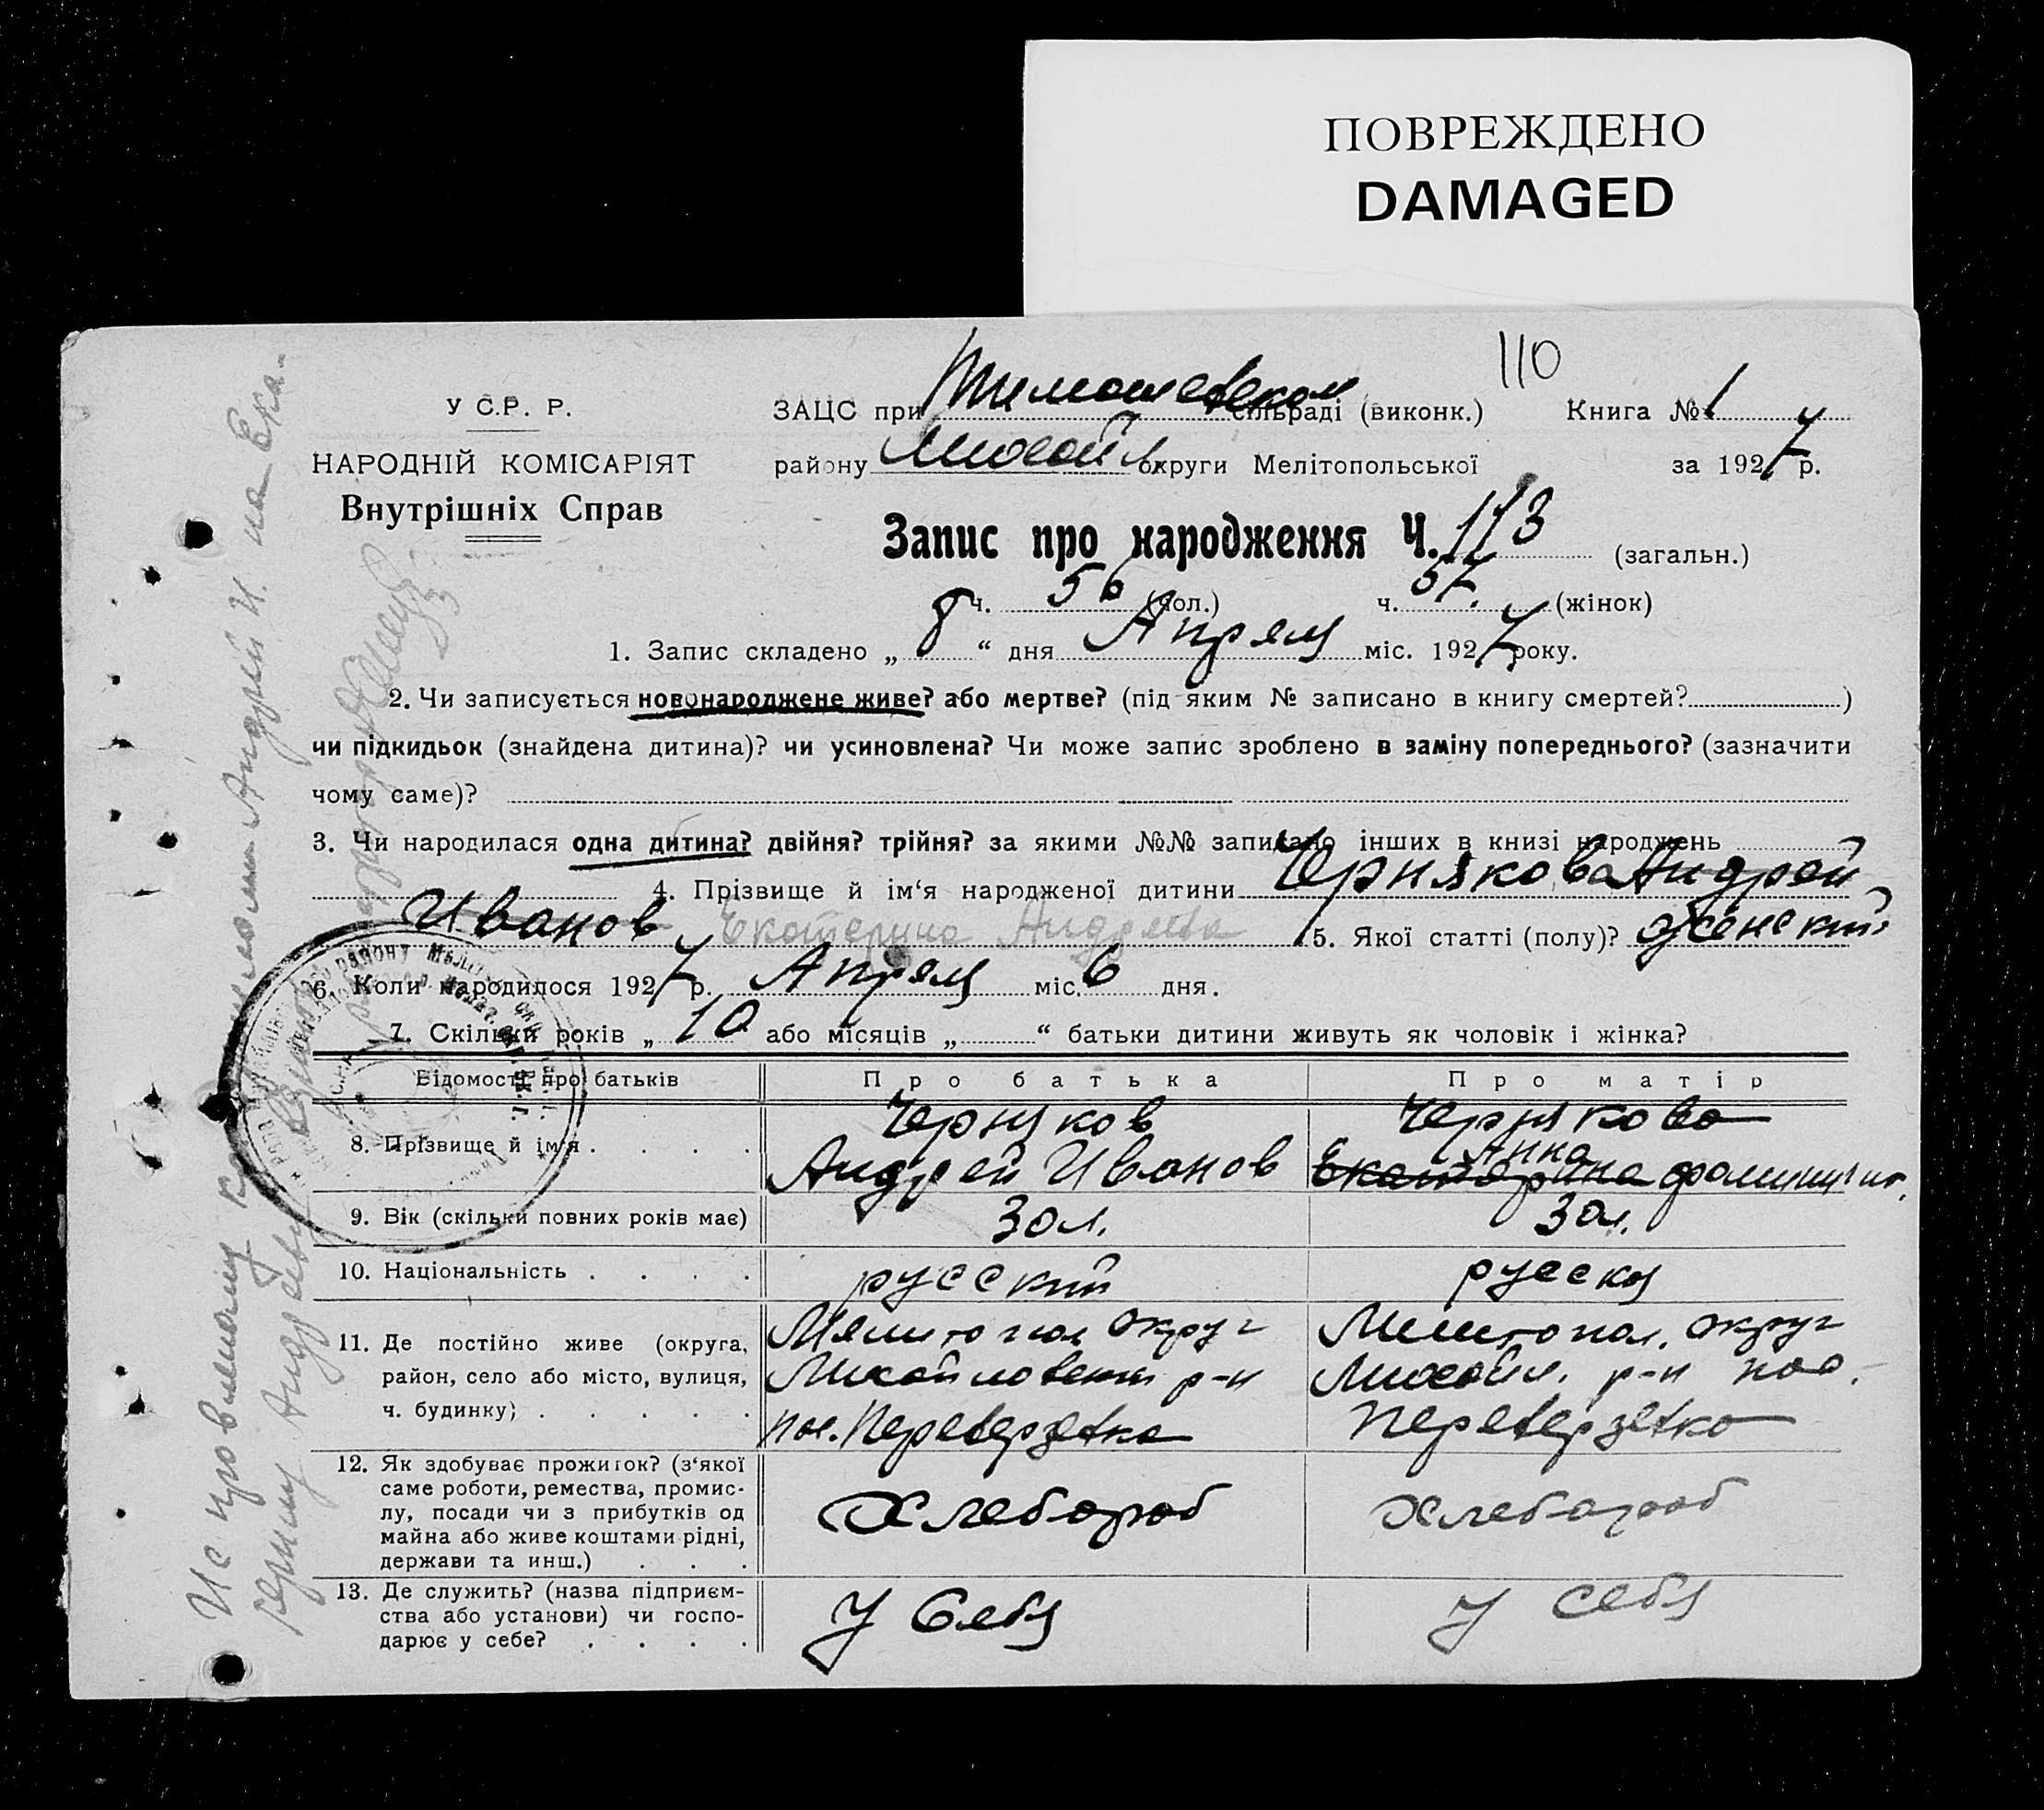 ПОВРЕЖДЕНО
DAMAGED
110
У С.Р. Р.
НАРОДНІЙ КОМІСАРІЯТ
Внутрішніх Справ
ЗАЦС при Тимошевском сільраді (виконк.) Книга № 1
району Михайл. округи Мелітопольської за 1927 р.
Запис про народження Ч. 113 (загальн.)
ч. 56 (чол.) ч. 57. (жінок)
1. Запис складено „ 8 “ дня Апреля міс. 1927 року.
2. Чи записується новонароджене живе? або мертве? (під яким № записано в книгу смертей? )
чи підкидьок (знайдена дитина)? чи усиновлена? Чи може запис зроблено в заміну попереднього? (зазначити
чому саме)?
3. Чи народилася одна дитина? двійня? трійня? за якими №№ записано інших в книзі народжень
4. Прізвище й ім‘я народженої дитини Чернякова Андрей
Иванов Екатерина Андреевна 5. Якої статті (полу)? женский
6. Коли народилося 1927 р. Апреля міс. 6 дня.
7. Скільки років „ 10 або місяців „ “ батьки дитини живуть як чоловік і жінка?
Відомості про батьків Про батька Про матір
8. Прізвище й ім‘я . . . . Черняков Чернякова
Андрей Иванов Екатерина Анна
9. Вік (скільки повних років має) 30 л. 30 л.
10. Національність . . . . русский русская
11. Де постійно живе (округа, Мелитопол округ Мелитопол. округ
район, село або місто, вулиця, Михайловский р-н Михайл. р-н пос.
ч. будинку) . . . . . пос. Переверзевка Переверзевка
12. Як здобуває прожиток? (з‘якої
саме роботи, ремества, промис-
лу, посади чи з прибутків од Хлебороб Хлебороб
майна або живе коштами рідні,
держави та инш.) . . .
13. Де служить? (назва підприєм-
ства або установи) чи госпо- У себя У себя
дарює у себе? . . . .